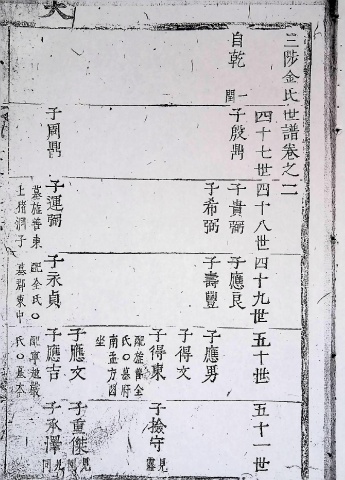 三陟金氏世譜卷之二
四十七世 四十八世 四十九世 五十世 五十一世
自乾 一閏
子殷鼎 子貴弼 子應良
子希弼 子壽豐 子應男
子得文
子得東 子撿守 見露
配雄
氏〇墓府
南
坐
子應文 子重傑 見
子周鼎 子運弼 子永貞 子應吉 子承澤 見
墓雄 東 配金氏〇 配寧越嚴
土 洞子 墓郡東中 氏〇墓本